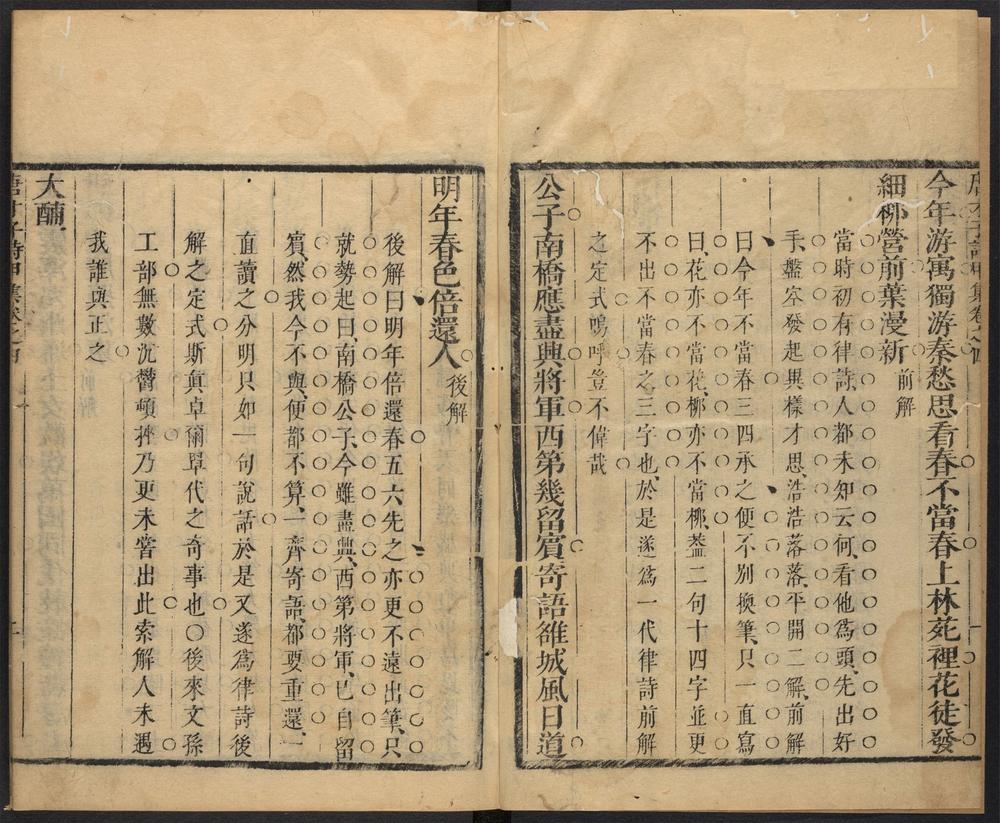 今年游寓獨游秦愁思看春不當春上林苑裡花徒發
細柳營前葉漫新前解
當時初有律詩人都未知云何看他爲頭先出好
手盤空發起異樣才思浩浩落落平開二解前解
曰今年不當春三四承之便不別換筆只一直寫
曰花亦不當花柳亦不當柳蓋二句十四字並更
不出不當春之三字也於是遂爲一代律詩前解
之定式嗚呼豈不偉哉
公子南橋應盡興將軍西第幾留賓寄語雒城風日道
明年春色倍還人後解
後解曰明年倍還春五六先之亦更不遠出筆只
就勢起曰南橋公子今雖盡興西第將軍已自留
賓然我今不與便都不算一齊寄語都要重還一
直讀之分明只如一句說話於是又遂爲律詩後
解之定式斯眞卓爾罩代之奇事也〇後來文孫
工部無數沉鬱頓挫乃更未嘗出此索解人未遇
我誰與正之
大酺